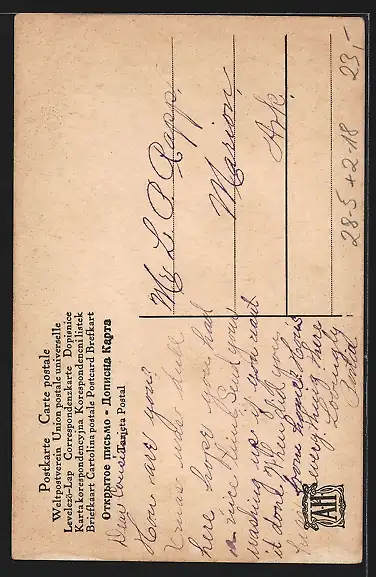 Postkarte Carte postale
Weltpostverein Union postale universelle
Levelezö-Lap Correspondenzkarte Dopisnice
Karta korespondencyjna Korespondencni listek
Briefkaart Cartolina postale Postcard Brefkort
Открытое письмо - Дописна Карта
Tarjeta Postal
Dear Cousin
How are you?
under hill
here hope you had
a nice time. Send your
washing up if you want
it done. When did you
come home. Cous
everything there
Lovingly
AH
L. P. Rapp,
Marion,
Ark.
28-5+218 23,-